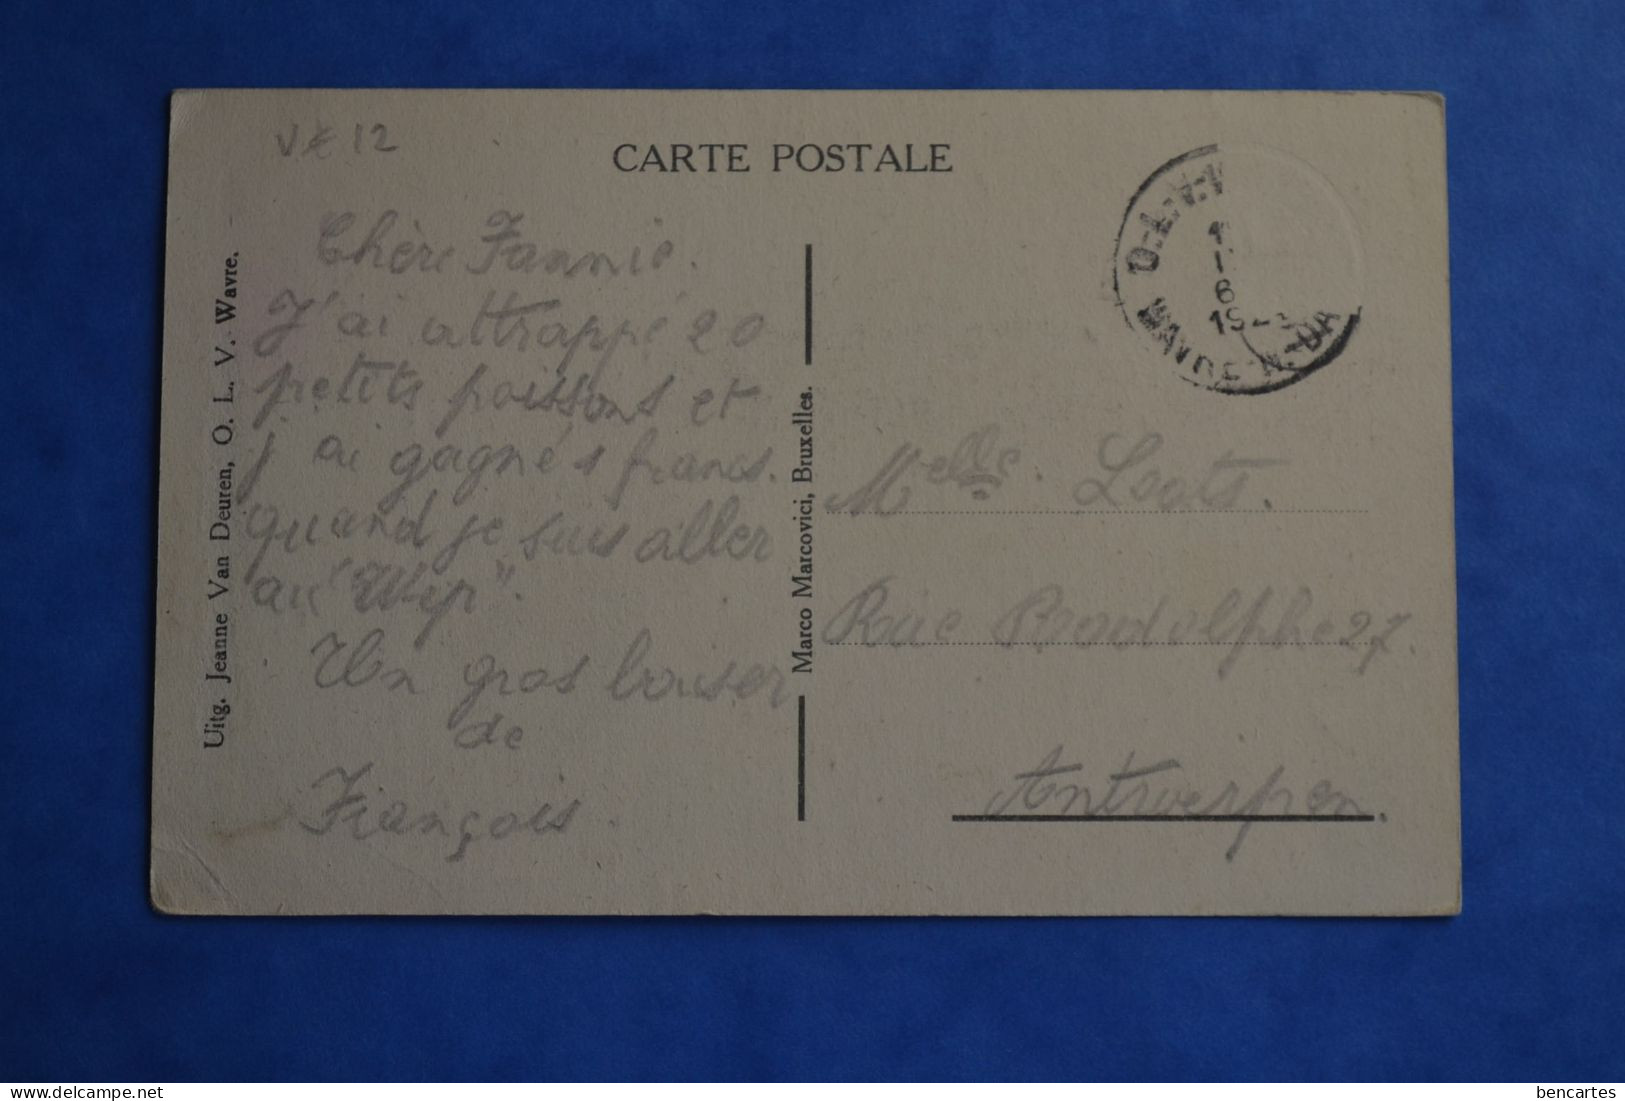 V € 12
CARTE POSTALE
Chère Fannie.
J'ai attrappé 20
petits poissons et
j'ai gagné 1 francs.
quand je suis aller
au "Wip".
Un gros baiser
de
François.
Uitg. Jeanne Van Deuren, O. L. V. Wavre.
Marco Marcovici, Bruxelles.
O.-L.-V.-W
6
WAVRE-N.-DA
Melle. Loots.
Rue Rodolphe 27.
Antwerpen.
bencartes